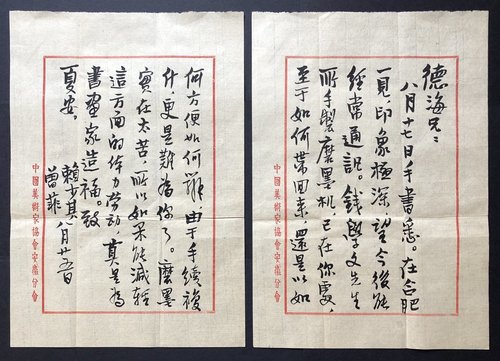 德海兄：
八月十七日手書悉。在合肥
一見，印象極深，望今後能
經常通訊。錢學文先生
所手製磨墨机已在你處，
至于如何帶回來，還是以如
中國美術家協會安徽分會
何方便如何辦，由于手續複
什，更是難為你了。磨墨
實在太苦，所以如果能減輕
這方面的体力勞动，真是為
書畫家造福。致
夏安。
賴少其
曾菲
八月廿五日
中國美術家協會安徽分會